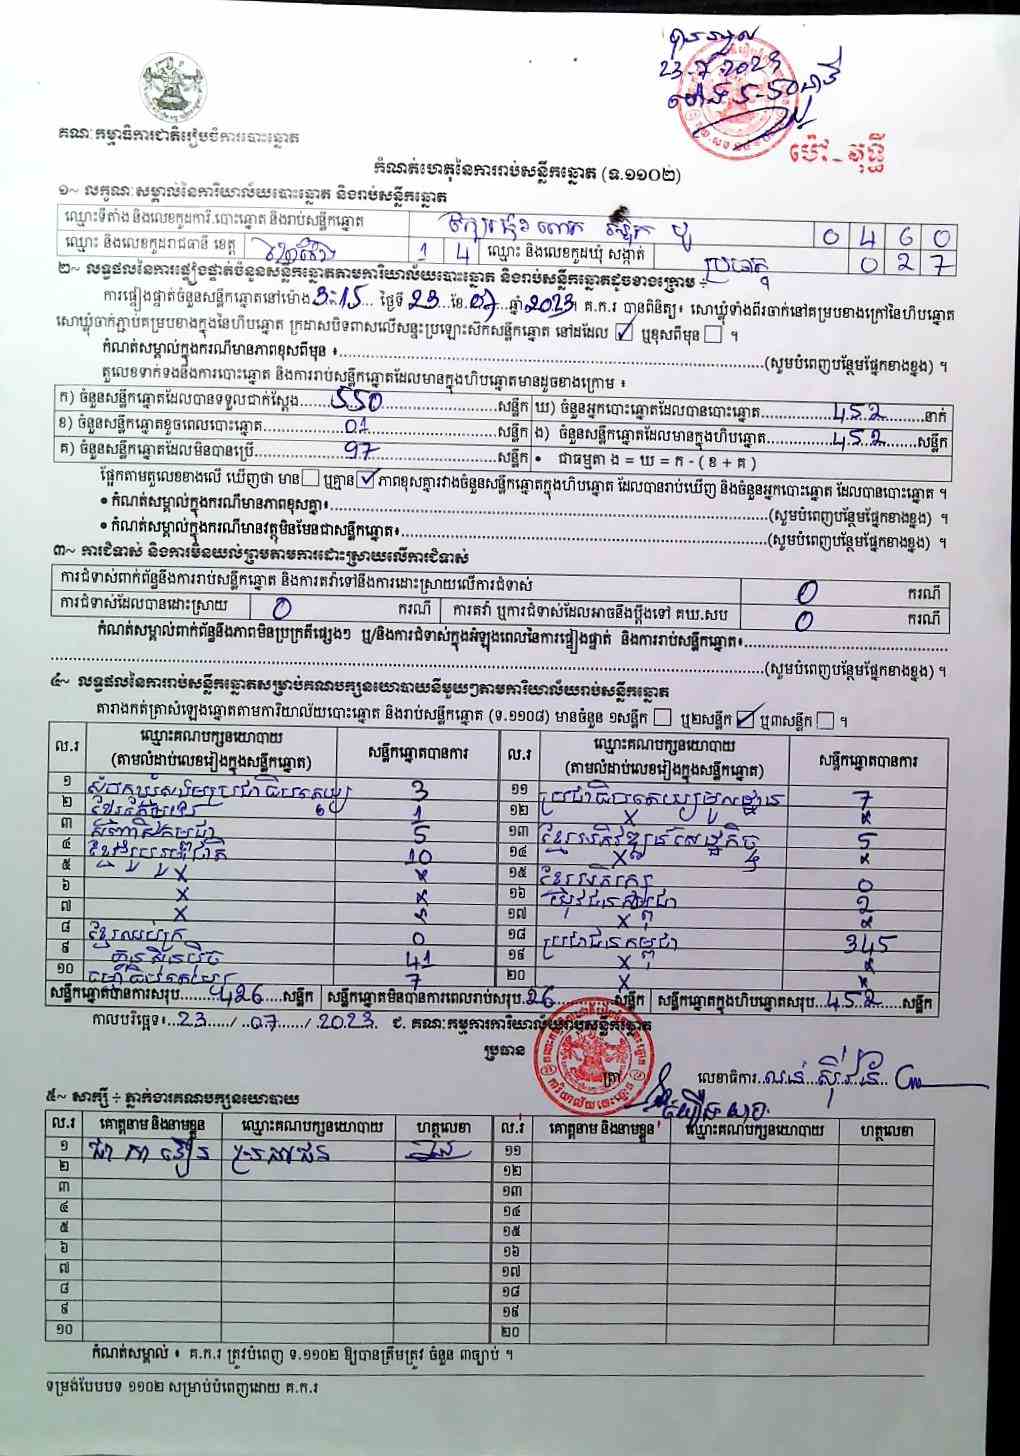 បានទទួល
23.7.2023
ម៉ោង
ប៉ៅ-វុទ្ធី
គណៈកម្មាធិការជាតិរៀបចំការបោះឆ្នោត
កំណត់ហេតុនៃការរាប់សន្លឹកឆ្នោត (ទ.១១០២)
១~ លក្ខណៈសម្គាល់នៃការិយាល័យបោះឆ្នោត និងរាប់សន្លឹកឆ្នោត
ឈ្មោះទីតាំង និងលេខកូដការិ.បោះឆ្នោត និងរាប់សន្លឹកឆ្នោត 0 4 6 0
ឈ្មោះ និងលេខកូដរាជធានី ខេត្ត 1 4 ឈ្មោះ និងលេខកូដឃុំ សង្កាត់ 0 2 7
២~ លទ្ធផលនៃការផ្ទៀងផ្ទាត់ចំនួនសន្លឹកឆ្នោតតាមការិយាល័យបោះឆ្នោត និងរាប់សន្លឹកឆ្នោតដូចខាងក្រោម ÷
ការផ្ទៀងផ្ទាត់ចំនួនសន្លឹកឆ្នោតនៅម៉ោង 3:15 ថ្ងៃទី 23 ខែ 07 ឆ្នាំ 2023។ គ.ក.រ បានពិនិត្យ៖ សោឃ្លុំទាំងពីរចាក់នៅគម្របខាងក្រៅនៃហិបឆ្នោត
សោឃ្លុំចាក់ភ្ជាប់គម្របខាងក្នុងនៃហិបឆ្នោត ក្រដាសបិទពាសលើសន្ទះប្រឡោះស៊ីកសន្លឹកឆ្នោត នៅដដែល ☑ ឬខុសពីមុន ☐ ។
កំណត់សម្គាល់ក្នុងករណីមានភាពខុសពីមុន ៖ (សូមបំពេញបន្ថែមផ្នែកខាងខ្នង) ។
តួលេខទាក់ទងនឹងការបោះឆ្នោត និងការរាប់សន្លឹកឆ្នោតដែលមានក្នុងហិបឆ្នោតមានដូចខាងក្រោម ៖
ក) ចំនួនសន្លឹកឆ្នោតដែលបានទទួលជាក់ស្តែង 550 សន្លឹក ឃ) ចំនួនអ្នកបោះឆ្នោតដែលបានបោះឆ្នោត 452 នាក់
ខ) ចំនួនសន្លឹកឆ្នោតខូចពេលបោះឆ្នោត 01 សន្លឹក ង) ចំនួនសន្លឹកឆ្នោតដែលមានក្នុងហិបឆ្នោត 452 សន្លឹក
គ) ចំនួនសន្លឹកឆ្នោតដែលមិនបានប្រើ 97 សន្លឹក • ជាធម្មតា ង = ឃ = ក - ( ខ + គ )
ផ្អែកតាមតួលេខខាងលើ ឃើញថា មាន ☐ ឬគ្មាន ☑ ភាពខុសគ្នារវាងចំនួនសន្លឹកឆ្នោតក្នុងហិបឆ្នោត ដែលបានរាប់ឃើញ និងចំនួនអ្នកបោះឆ្នោត ដែលបានបោះឆ្នោត ។
• កំណត់សម្គាល់ក្នុងករណីមានភាពខុសគ្នា៖ (សូមបំពេញបន្ថែមផ្នែកខាងខ្នង) ។
• កំណត់សម្គាល់ក្នុងករណីមានវត្ថុមិនមែនជាសន្លឹកឆ្នោត៖ (សូមបំពេញបន្ថែមផ្នែកខាងខ្នង) ។
៣~ ការជំទាស់ និងការមិនយល់ព្រមតាមការដោះស្រាយលើការជំទាស់
ការជំទាស់ពាក់ព័ន្ធនឹងការរាប់សន្លឹកឆ្នោត និងការតវ៉ាទៅនឹងការដោះស្រាយលើការជំទាស់ 0 ករណី
ការជំទាស់ដែលបានដោះស្រាយ 0 ករណី ការតវ៉ា ឬការជំទាស់ដែលអាចនឹងប្តឹងទៅ គឃ.សប 0 ករណី
កំណត់សម្គាល់ពាក់ព័ន្ធនឹងភាពមិនប្រក្រតីផ្សេងៗ ឬ/និងការជំទាស់ក្នុងអំឡុងពេលនៃការផ្ទៀងផ្ទាត់ និងការរាប់សន្លឹកឆ្នោត៖
(សូមបំពេញបន្ថែមផ្នែកខាងខ្នង) ។
៤~ លទ្ធផលនៃការរាប់សន្លឹកឆ្នោតសម្រាប់គណបក្សនយោបាយនីមួយៗតាមការិយាល័យរាប់សន្លឹកឆ្នោត
តារាងកត់ត្រាសំឡេងឆ្នោតតាមការិយាល័យបោះឆ្នោត និងរាប់សន្លឹកឆ្នោត (ទ.១១០៨) មានចំនួន ១សន្លឹក ☐ ឬ២សន្លឹក ☑ ឬ៣សន្លឹក ☐ ។
ល.រ ឈ្មោះគណបក្សនយោបាយ (តាមលំដាប់លេខរៀងក្នុងសន្លឹកឆ្នោត) សន្លឹកឆ្នោតបានការ ល.រ ឈ្មោះគណបក្សនយោបាយ (តាមលំដាប់លេខរៀងក្នុងសន្លឹកឆ្នោត) សន្លឹកឆ្នោតបានការ
១ សំបុកឃ្មុំសង្គមប្រជាធិបតេយ្យ 3 ១១ ប្រជាធិបតេយ្យមូលដ្ឋាន 7
២ ខ្មែរតែមួយ 1 ១២ x x
៣ 5 ១៣ ខ្មែរអភិវឌ្ឍន៍សេដ្ឋកិច្ច 5
៤ ខ្មែររួបរួមជាតិ 10 ១៤ x x
៥ x x ១៥ ខ្មែរអភិរក្ស 0
៦ x x ១៦ 2
៧ x x ១៧ x x
៨ ខ្មែរឈប់ក្រ 0 ១៨ ប្រជាជនកម្ពុជា 345
៩ ហ៊្វុនស៊ិនប៉ិច 41 ១៩ x x
១០ 7 ២០ x x
សន្លឹកឆ្នោតបានការសរុប 426 សន្លឹក សន្លឹកឆ្នោតមិនបានការពេលរាប់សរុប 26 សន្លឹក សន្លឹកឆ្នោតក្នុងហិបឆ្នោតសរុប 452 សន្លឹក
កាលបរិច្ឆេទ៖ 23 / 07 / 2023 ជ. គណៈកម្មការការិយាល័យរាប់សន្លឹកឆ្នោត
ប្រធាន
ត្រា លេខាធិការ
៥~ សាក្សី ÷ ភ្នាក់ងារគណបក្សនយោបាយ
ល.រ គោត្តនាម និងនាមខ្លួន ឈ្មោះគណបក្សនយោបាយ ហត្ថលេខា ល.រ គោត្តនាម និងនាមខ្លួន ឈ្មោះគណបក្សនយោបាយ ហត្ថលេខា
១ ប្រជាជន ១១
២ ១២
៣ ១៣
៤ ១៤
៥ ១៥
៦ ១៦
៧ ១៧
៨ ១៨
៩ ១៩
១០ ២០
កំណត់សម្គាល់ ៖ គ.ក.រ ត្រូវបំពេញ ទ.១១០២ ឱ្យបានត្រឹមត្រូវ ចំនួន ៣ច្បាប់ ។
ទម្រង់បែបបទ ១១០២ សម្រាប់បំពេញដោយ គ.ក.រ